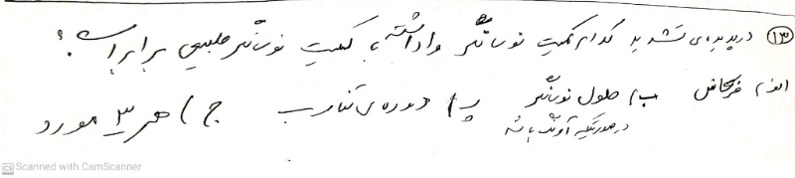 ۱۳) در پدیده‌ی تشدید کدام کمیت نوسانگر واداشته با کمیت نوسانگر طبیعی برابر است؟
الف) فرکانس ب) طول نوسانگر پ) دوره‌ی تناوب ج) هر ۳ مورد
در صورتیکه آونگ باشد
CS Scanned with CamScanner